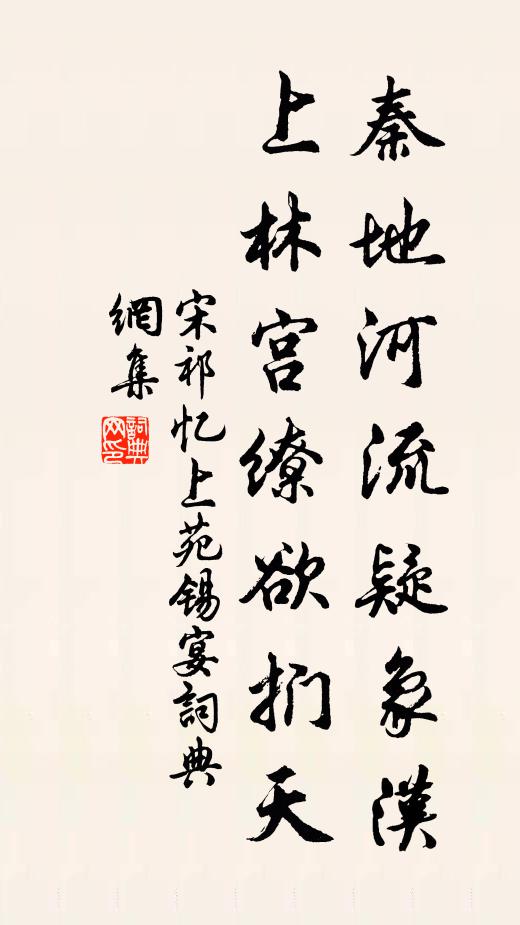 秦地河流疑象漢
上林宫缭欲扪天
宋祁忆上苑锡宴詞典
網集
詞典網印